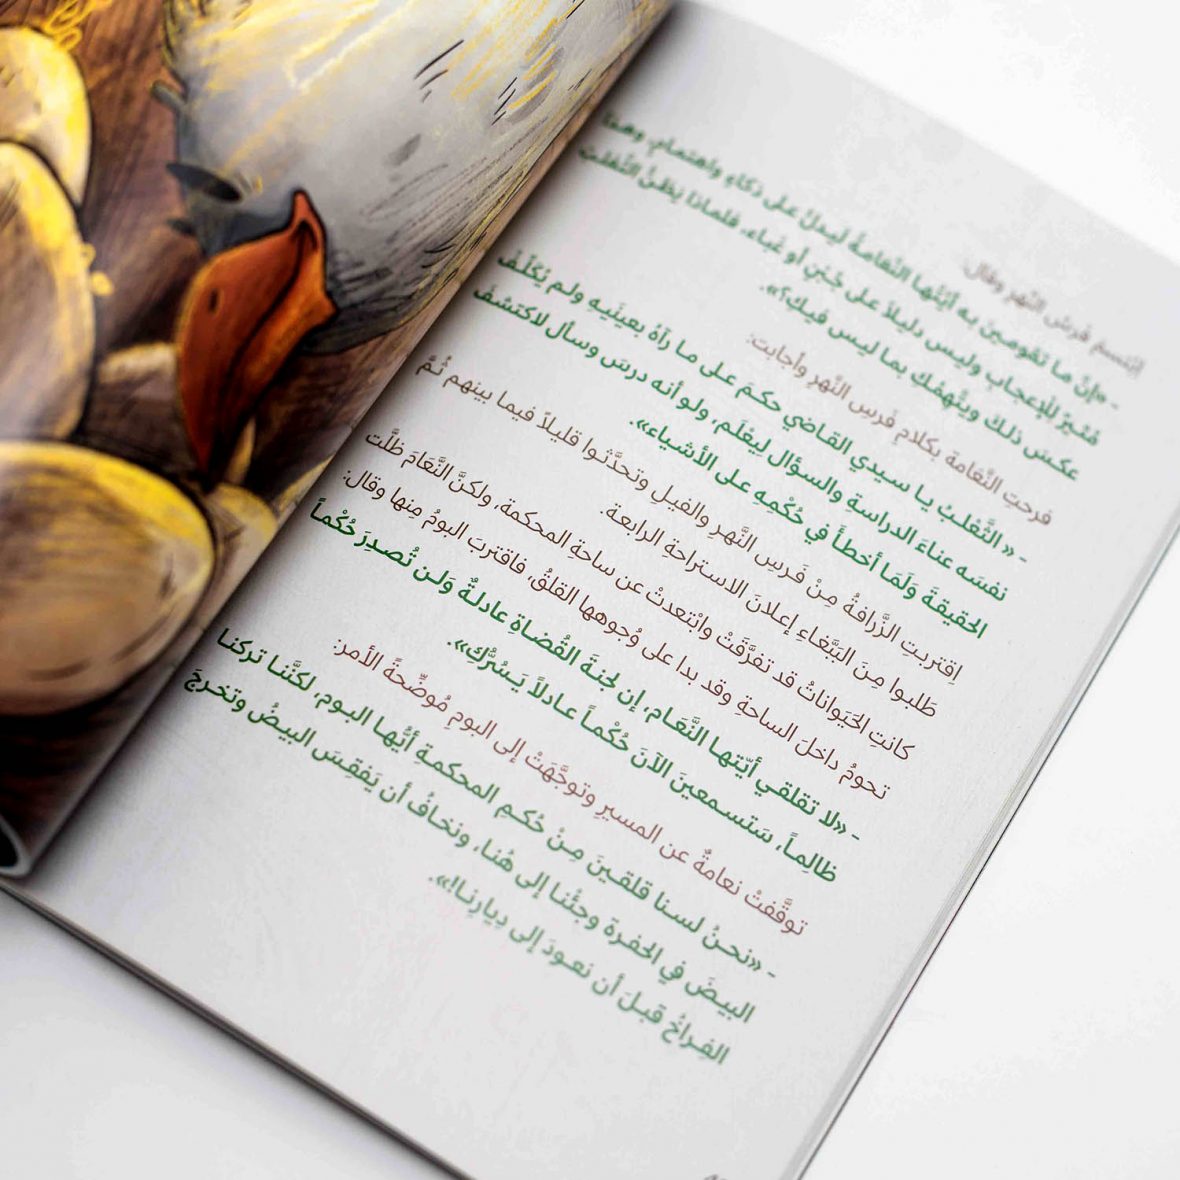 ابتسم فرسُ النّهر وقال:
- «إنّ ما تقومين به أيّتُها النّعامةُ ليدلُّ على ذكاءٍ واهتمامٍ، وهذا
مُثيرٌ للإعجاب وليس دليلاً على جُبْنٍ أو غباء، فلماذا يظنُّ الثّعلبُ
عكسَ ذلكَ ويتَّهِمُكِ بما ليس فيكِ؟».
فرحتِ النَّعامة بكلام فَرسِ النَّهرِ وأجابت:
- « الثَّعلبُ يا سيدي القاضي حكمَ على ما رآهُ بعينَيهِ ولم يُكلّفْ
نفسَه عناءَ الدراسةِ والسؤال ليعْلَم، ولو أنه درسَ وسأل لاكتشفَ
الحقيقةَ وَلَمَا أخطأَ في حُكْمِهِ على الأشياء».
اِقتربتِ الزَّرافةُ مِنْ فَرسِ النَّهرِ والفيل وتحدَّثوا قليلاً فيما بينهم ثُمَّ
طَلبوا مِنَ الببَّغاءِ إعلانَ الاستراحة الرابعة.
كانتِ الحَيَواناتُ قد تفرَّقَتْ وابْتعدتْ عن ساحةِ المحكمة، ولكنَّ النَّعَامَ ظلَّت
تحومُ داخلَ الساحةِ وقد بدا على وُجوهها القلقُ، فاقتربَ البومُ مِنها وقال:
- «لا تقلقي أيّتها النَّعَام، إن لجنةَ القُضاةِ عادلةٌ وَلن تُصدِرَ حُكْماً
ظالِماً، سَتسمعينَ الآنَ حُكْماً عادلاً يَسُرُّكِ».
توقَّفتْ نعامةٌ عن المسيرِ وتوجَّهَتْ إلى البومِ مُوَضِّحةً الأمر:
- «نحنُ لسنا قلقينَ مِنْ حُكمِ المحكمةِ أيُّها البوم، لكنَّنا تركنا
البيضَ في الحفرة وجئْنا إلى هُنا، ونخافُ أن يَفقِسَ البيضُ وتخرجَ
الفِراخُ قبلَ أن نعودَ إلى دِيارِنا!».